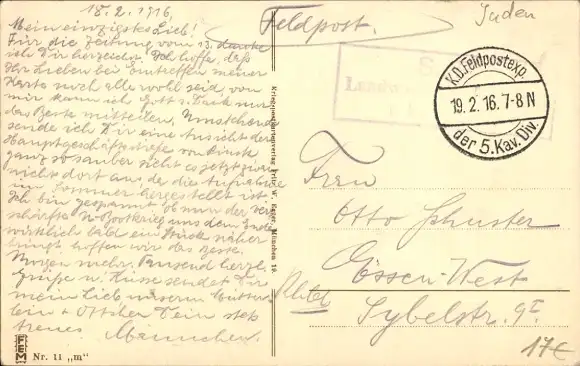 18.2.1916.
Mein einzigstes Lieb!
Für die Zeitung vom 13. danke
ich Dir herzlich. Ich hoffe, daß
Ihr Lieben bei Eintreffen meiner
Karte noch alle wohl seid, von
mir kann ich Gott s. Dank nur
das Beste mitteilen. Umstehend
sende ich Dir eine Ansicht der
Hauptgeschäftsstraße von Pinsk
ganz so sauber sieht es jetzt zwar
nicht dort aus, da die Aufnahme
im Sommer hergestellt ist.
Ich bin gespannt ob nun der ver-
schärfte U-Bootkrieg uns dem Ende
wirklich bald ein Stück näher
bringt hoffen wir das Beste.
Morgen mehr. Tausend herzl.
Grüße u. Küsse sendet Dir
mein Lieb unserm
+ Ottchen Dein stets
treues Männchen.
Feldpost.
Juden
K.D. Feldpostexp.
19.2.16.7-8N
der 5. Kav. Div.
Frau
Otto Schuster
Essen-West
Rhld
Sybelstr. 9I
17€
Kriegspostkartenverlag
München 19.
FEM
Nr. 11 „m"